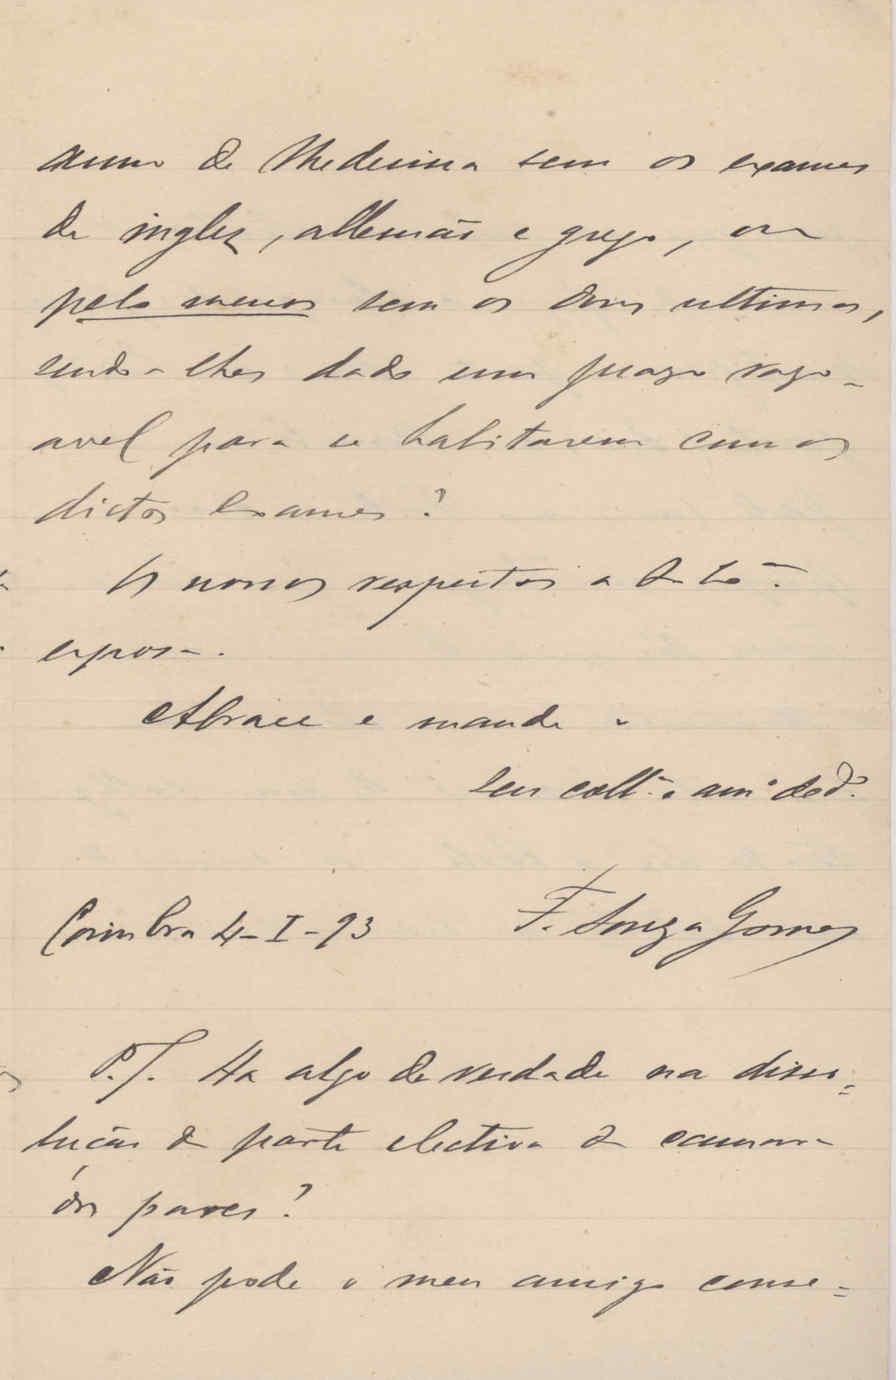 anno de Medecina sem os exames
de inglez, allemão e grego, ou
pelo menos sem os dous ultimos,
sendo-lhes dado um prazo razo-
avel para se habilitarem com os
dictos exames?
Os nossos respeitos a Sua Ex.ma
esposa.
Abrace e mande o
seu coll.a e am.o ded.o
Coimbra 4-I-93 F. Souza Gomes
P.S. Ha algo de verdade na disso-
lução da parte electiva da camara
dos pares?
Não pode o meu amigo conse-